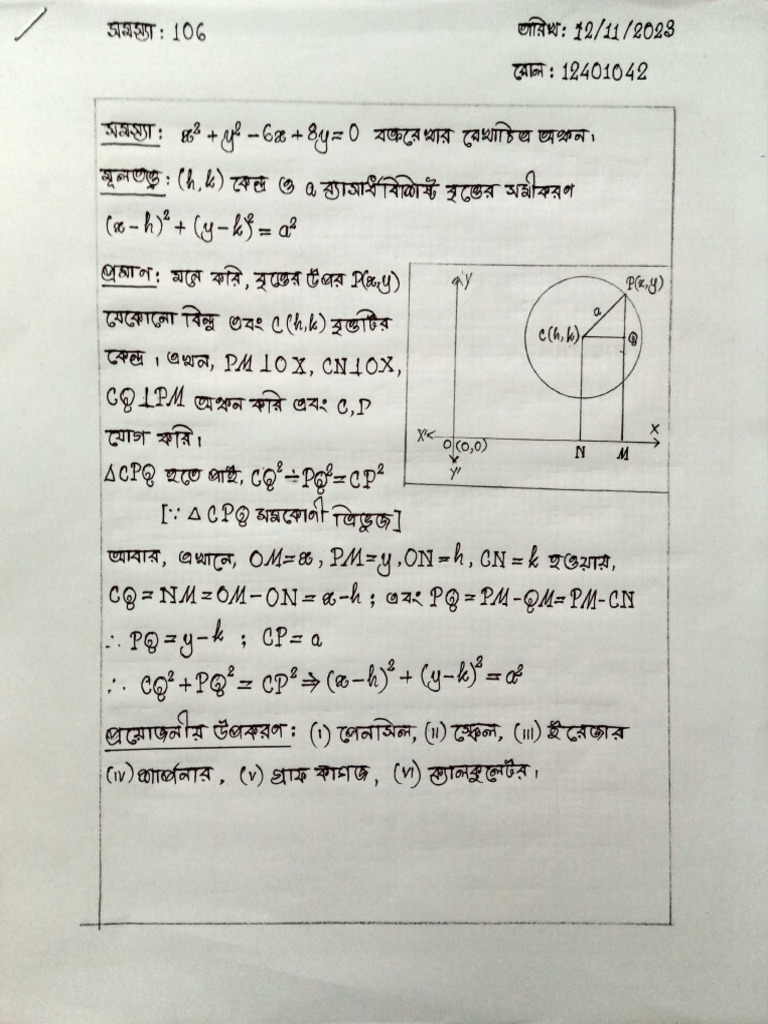 সমস্যা: 106
তারিখ: 12/11/2023
রোল: 12401042
সমস্যা: x² + y² - 6x + 8y = 0 বক্ররেখার লেখচিত্র অঙ্কন।
মূলতত্ত্ব: (h, k) কেন্দ্র ও a ব্যাসার্ধবিশিষ্ট বৃত্তের সমীকরণ
(x-h)² + (y-k)² = a²
প্রমাণ: মনে করি, বৃত্তের উপর P(x,y)
যেকোনো বিন্দু এবং C(h,k) বৃত্তটির
কেন্দ্র। এখন, PM⊥OX, CN⊥OX,
CQ⊥PM অঙ্কন করি এবং C, P
যোগ করি।
Y
P(x,y)
a
C(h,k)
Q
X'
O(0,0)
X
Y'
N
M
ΔCPQ হতে পাই, CQ² + PQ² = CP²
[∵ ΔCPQ সমকোণী ত্রিভুজ]
আবার, এখানে, OM=x, PM=y, ON=h, CN=k হওয়ায়,
CQ = NM = OM-ON = x-h ; এবং PQ = PM-QM= PM-CN
∴ PQ = y-k ; CP = a
∴ CQ² + PQ² = CP² ⇒ (x-h)² + (y-k)² = a²
প্রয়োজনীয় উপকরণ: (i) পেনসিল, (ii) স্কেল, (iii) ইরেজার
(iv) শার্পনার, (v) গ্রাফ কাগজ, (vi) ক্যালকুলেটর।